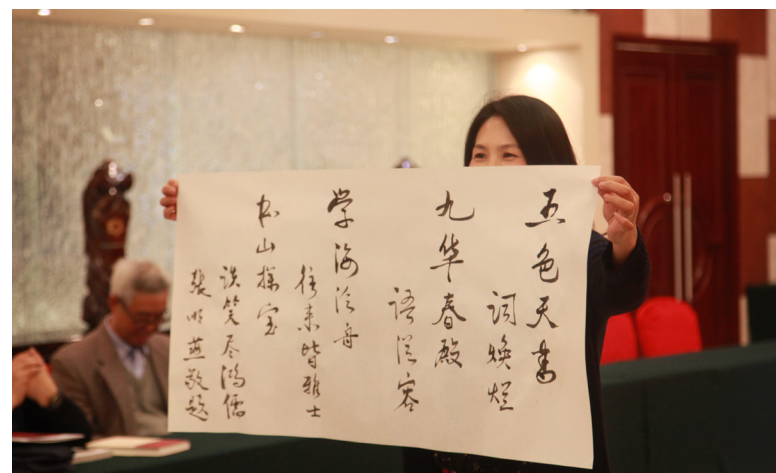 五色天书
词焕烂
九华春殿
语从容
学海泛舟
往来皆雅士
书山探宝
谈笑尽鸿儒
张明燕敬题